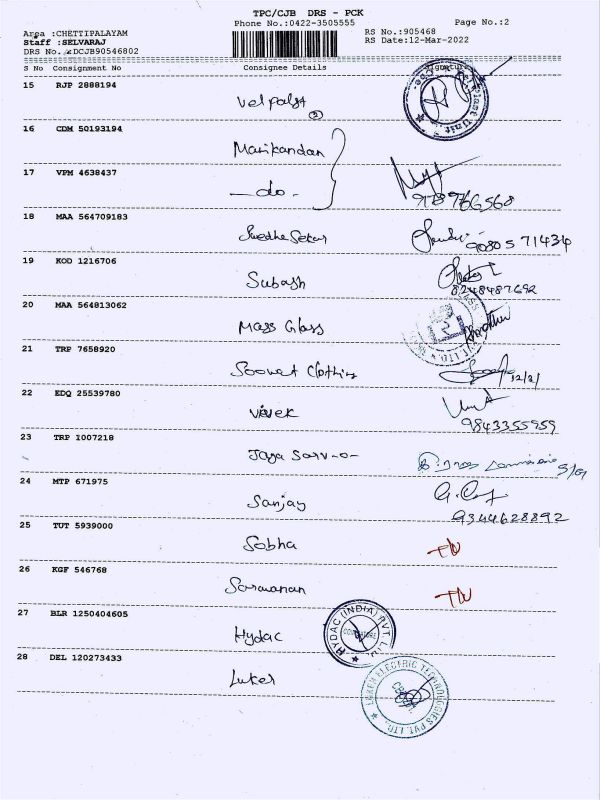 TPC/CJB DRS - PCK
Phone No.:0422-3505555
Page No.:2
Area :CHETTIPALAYAM
Staff :SELVARAJ
DRS No.:DCJB90546802
RS No.:905468
RS Date:12-Mar-2022
S No Consignment No Consignee Details Signature
15 RJP 2888194
Velpalst
2
16 CDM 50193194
Manikandan
17 VPM 4638437
-do-
9789766568
18 MAA 564709183
SwedhaSekar
9080571434
19 KOD 1216706
Subash
8248487692
20 MAA 564813062
Mass Glass
21 TRP 7658920
Clothing
12/2/
22 EDQ 25539780
Vivek
9843355959
23 TRP 1007218
Jaya
24 MTP 671975
Sanjay
9344628892
25 TUT 5939000
Sobha
26 KGF 546768
Saravanan
27 BLR 1250404605
Hydac
HYDAC (INDIA) PVT. LTD.
28 DEL 120273433
Luker
LUKER ELECTRIC TECHNOLOGIES PVT. LTD.